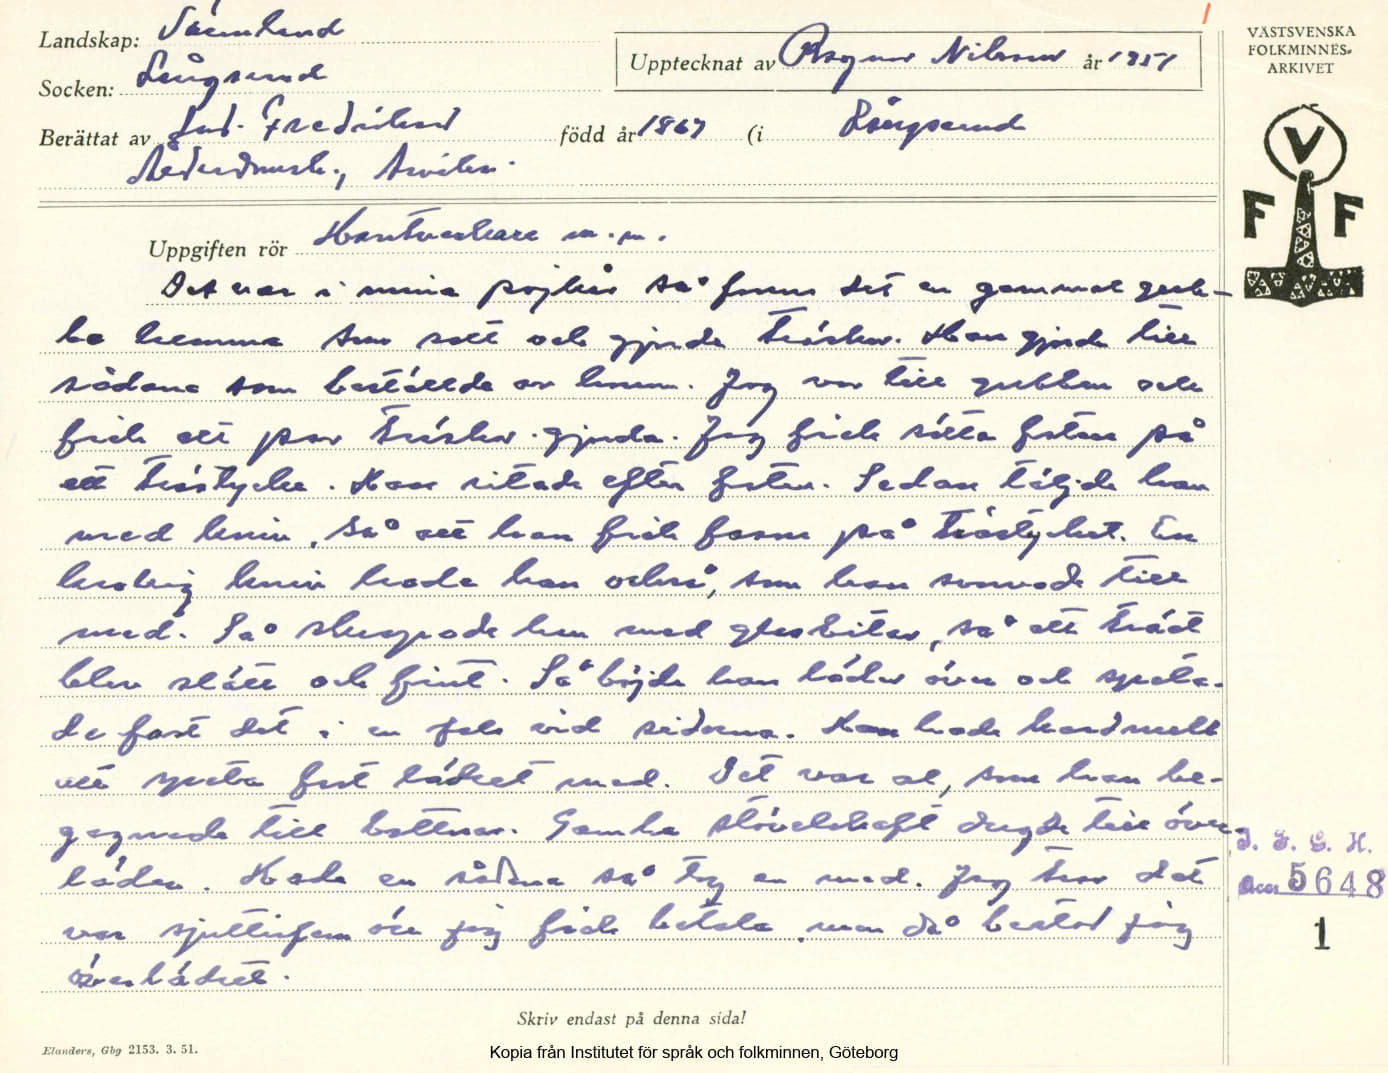 Landskap: Värmland
Upptecknat av Ragnar Nilsson år 1951
VÄSTSVENSKA
FOLKMINNES-
ARKIVET
Socken: Långserud
Berättat av Lud. Fredriksson född år 1867 (i Långserud
Arvika.
V
F F
Uppgiften rör Hantverkare m.m.
Det var i mina pojkår så fanns det en gammal gub-
be hemma som satt och gjorde träskor. Han gjorde till
sådana som beställde av honom. Jag var till gubben och
fick ett par träskor gjorda. Jag fick sätta foten på
ett trästycke. Han ritade efter foten. Sedan täljde han
med kniv, så att han fick form på trästycket. En
krokig kniv hade han också, som han svarvade till
med. Så skrapade han med glasbitar, så att träet
blev slätt och fint. Så böjde han läder över och spika-
de fast det i en fals vid sidorna. Han hade handnubb
att spika fast lädret med. Det var al, som han be-
gagnade till bottnar. Gamla stövelskaft dugde till över-
läder. Hade en sådana så tog en med. Jag tror det
var sjuttifem öre jag fick betala, men då bestod jag
överlädret.
I. F. G. H.
Acc. 5648
1
Skriv endast på denna sida!
Elanders, Gbg 2153. 3. 51.
Kopia från Institutet för språk och folkminnen, Göteborg